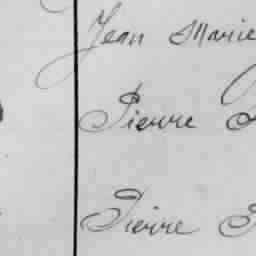 Jean Marie
Pierre
Pierre